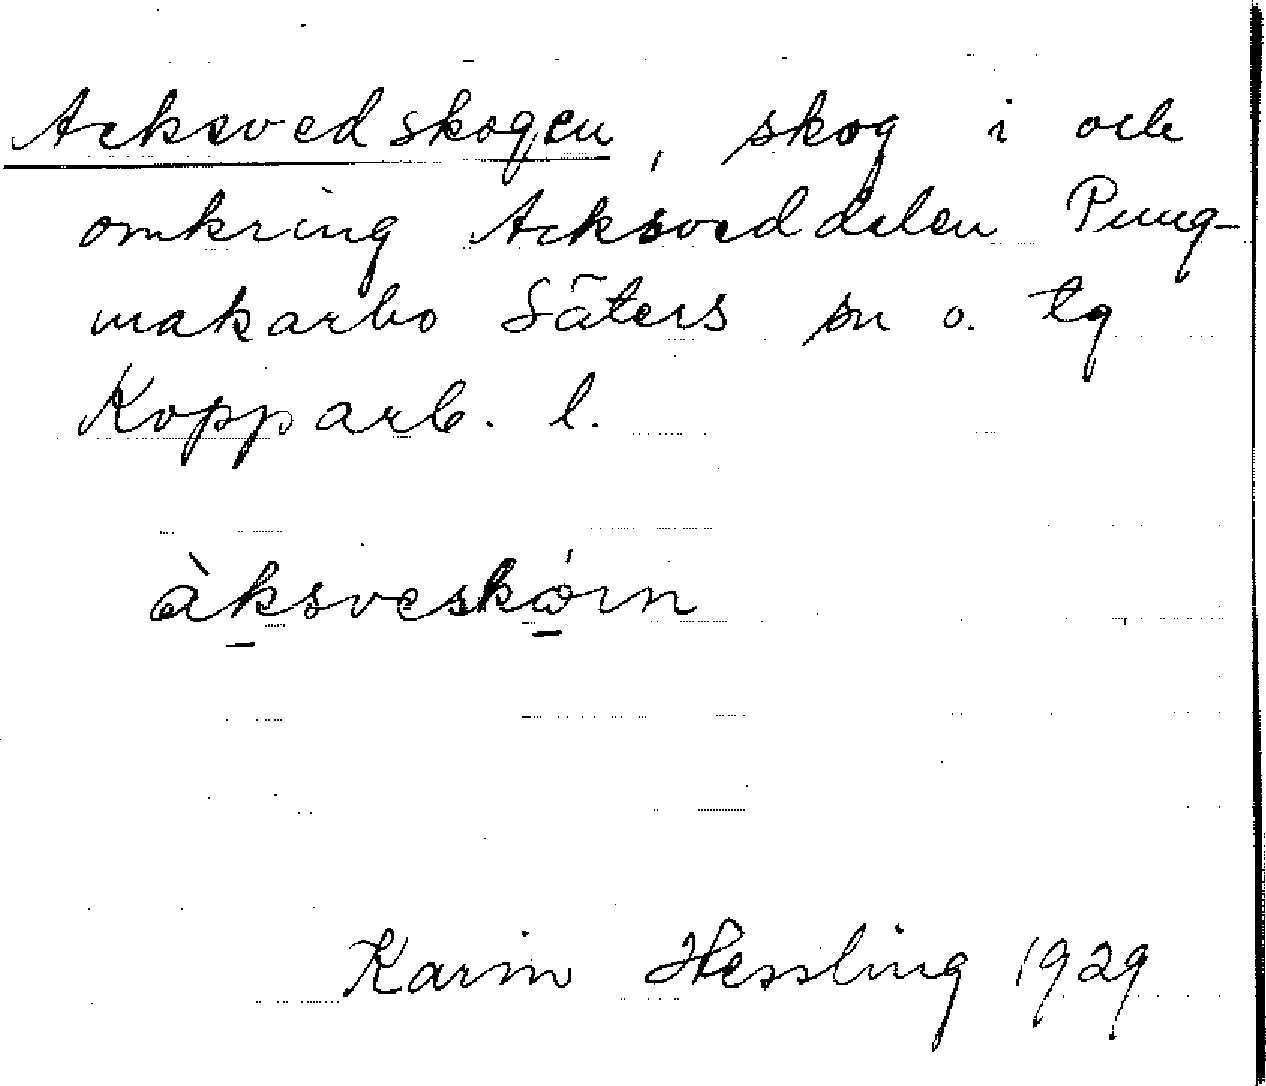 Acksvedskogen, skog i och
omkring Acksveddalen Pung-
makarbo Säters sn o. tg
Kopparb. l.
àksveskó̱rn
Karin Hessling 1929